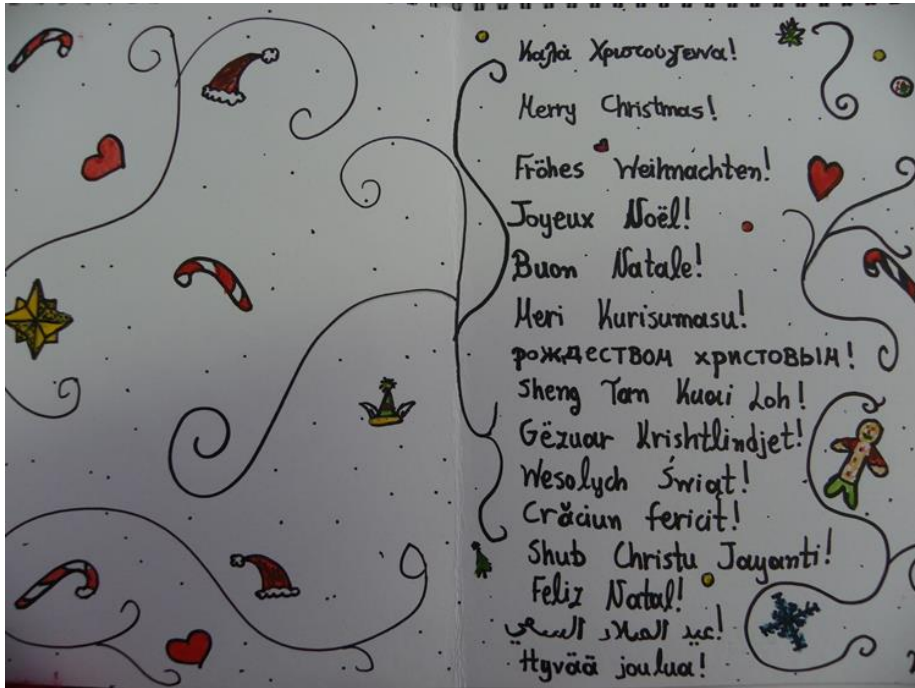 Καλά Χριστούγεννα!
Merry Christmas!
Fröhes Weihnachten!
Joyeux Noël!
Buon Natale!
Meri Kurisumasu!
рождеством христовым!
Sheng Tan Kuai Loh!
Gëzuar Krishtlindjet!
Wesolych Świąt!
Crăciun fericit!
Shub Christu Jayanti!
Feliz Natal!
عيد الميلاد!
Hyvää joulua!